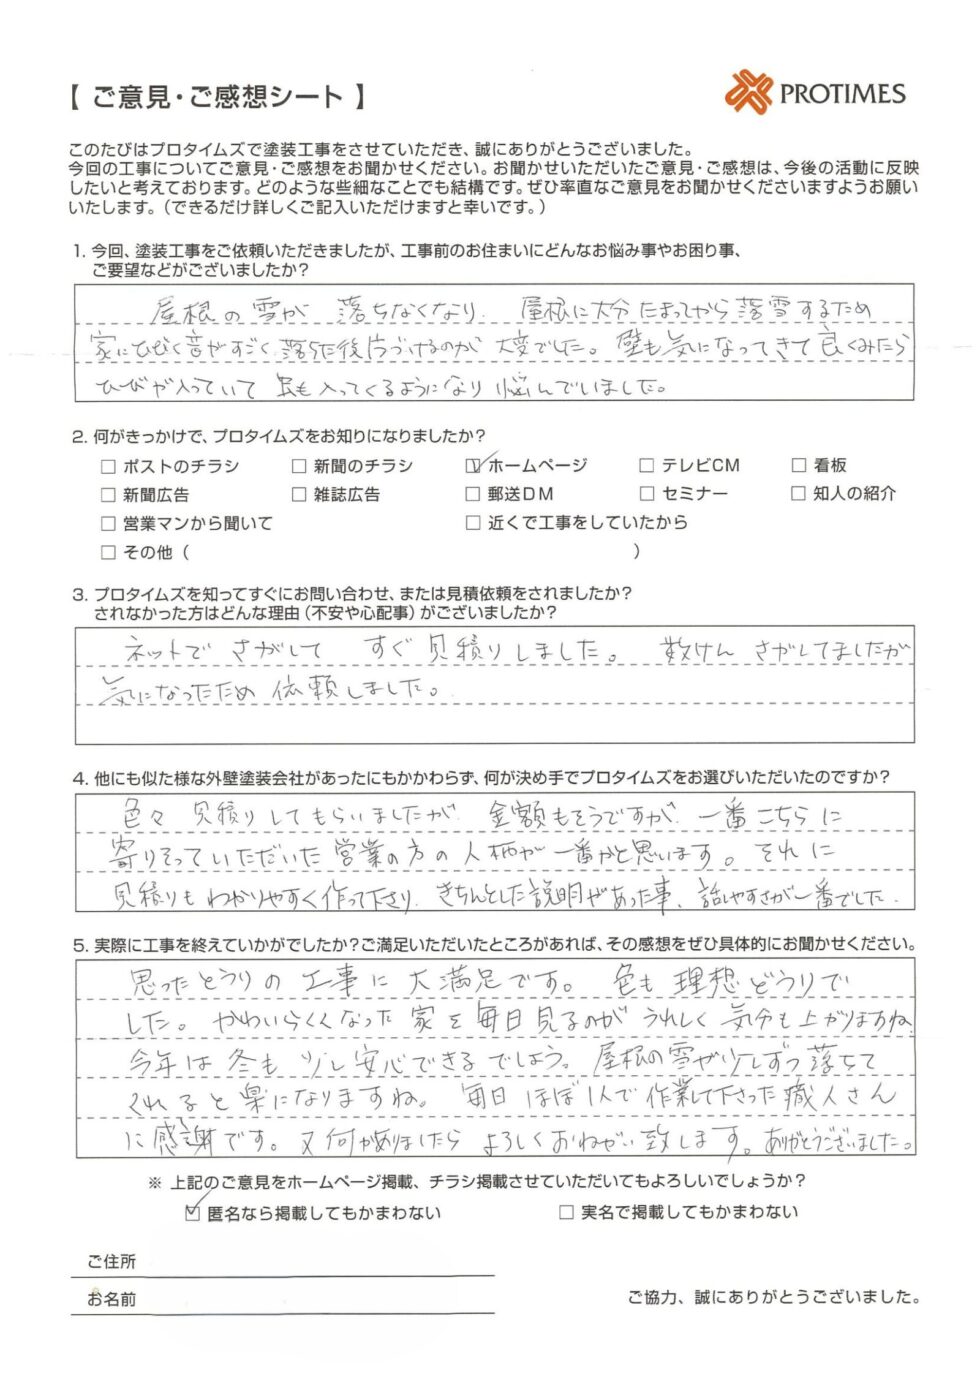 【 ご意見・ご感想シート 】
PROTIMES
このたびはプロタイムズで塗装工事をさせていただき、誠にありがとうございました。
今回の工事についてご意見・ご感想をお聞かせください。お聞かせいただいたご意見・ご感想は、今後の活動に反映
したいと考えております。どのような些細なことでも結構です。ぜひ率直なご意見をお聞かせくださいますようお願い
いたします。（できるだけ詳しくご記入いただけますと幸いです。）
1. 今回、塗装工事をご依頼いただきましたが、工事前のお住まいにどんなお悩み事やお困り事、
ご要望などがございましたか？
屋根の雪が 落ちなくなり、屋根に大分たまってから落雪するため
家にひびく音がすごく、落ちた後片づけるのが大変でした。壁も気になってきて良くみたら
ひびが入っていて 虫も入ってくるようになり悩んでいました。
2. 何がきっかけで、プロタイムズをお知りになりましたか？
□ ポストのチラシ □ 新聞のチラシ ☑ ホームページ □ テレビCM □ 看板
□ 新聞広告 □ 雑誌広告 □ 郵送DM □ セミナー □ 知人の紹介
□ 営業マンから聞いて □ 近くで工事をしていたから
□ その他（ ）
3. プロタイムズを知ってすぐにお問い合わせ、または見積依頼をされましたか？
されなかった方はどんな理由（不安や心配事）がございましたか？
ネットで さがして すぐ見積りしました。 数けん さがしてましたが
気になったため 依頼しました。
4. 他にも似た様な外壁塗装会社があったにもかかわらず、何が決め手でプロタイムズをお選びいただいたのですか？
色々 見積りしてもらいましたが、金額もそうですが、一番こちらに
寄りそっていただいた営業の方の人柄が一番かと思います。それに
見積りもわかりやすく作って下さり、きちんとした説明があった事、話しやすさが一番でした.
5. 実際に工事を終えていかがでしたか？ご満足いただいたところがあれば、その感想をぜひ具体的にお聞かせください。
思ったとうりの工事に大満足です。色も理想どうりで
した。かわいらしくなった家を毎日見るのがうれしく気分も上がりますね。
今年は冬も少し安心できるでしょう。屋根の雪が少しずつ落ちて
くれると楽になりますね。毎日ほぼ1人で作業して下さった職人さん
に感謝です。又何かありましたらよろしくおねがい致します。ありがとうございました。
※ 上記のご意見をホームページ掲載、チラシ掲載させていただいてもよろしいでしょうか？
☑ 匿名なら掲載してもかまわない □ 実名で掲載してもかまわない
ご住所
お名前
ご協力、誠にありがとうございました。